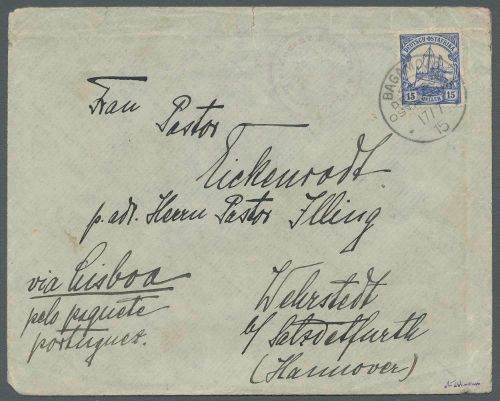 DEUTSCH-OSTAFRIKA
15 HELLER 15
BAGAMOYO
17/1
15
Frau Pastor
Eickenrodt
p. adr. Herrn Pastor Illing
via Lisboa
pelo paquete
portuguez.
Wehrstedt
b/ Salzdetfurth
(Hannover)